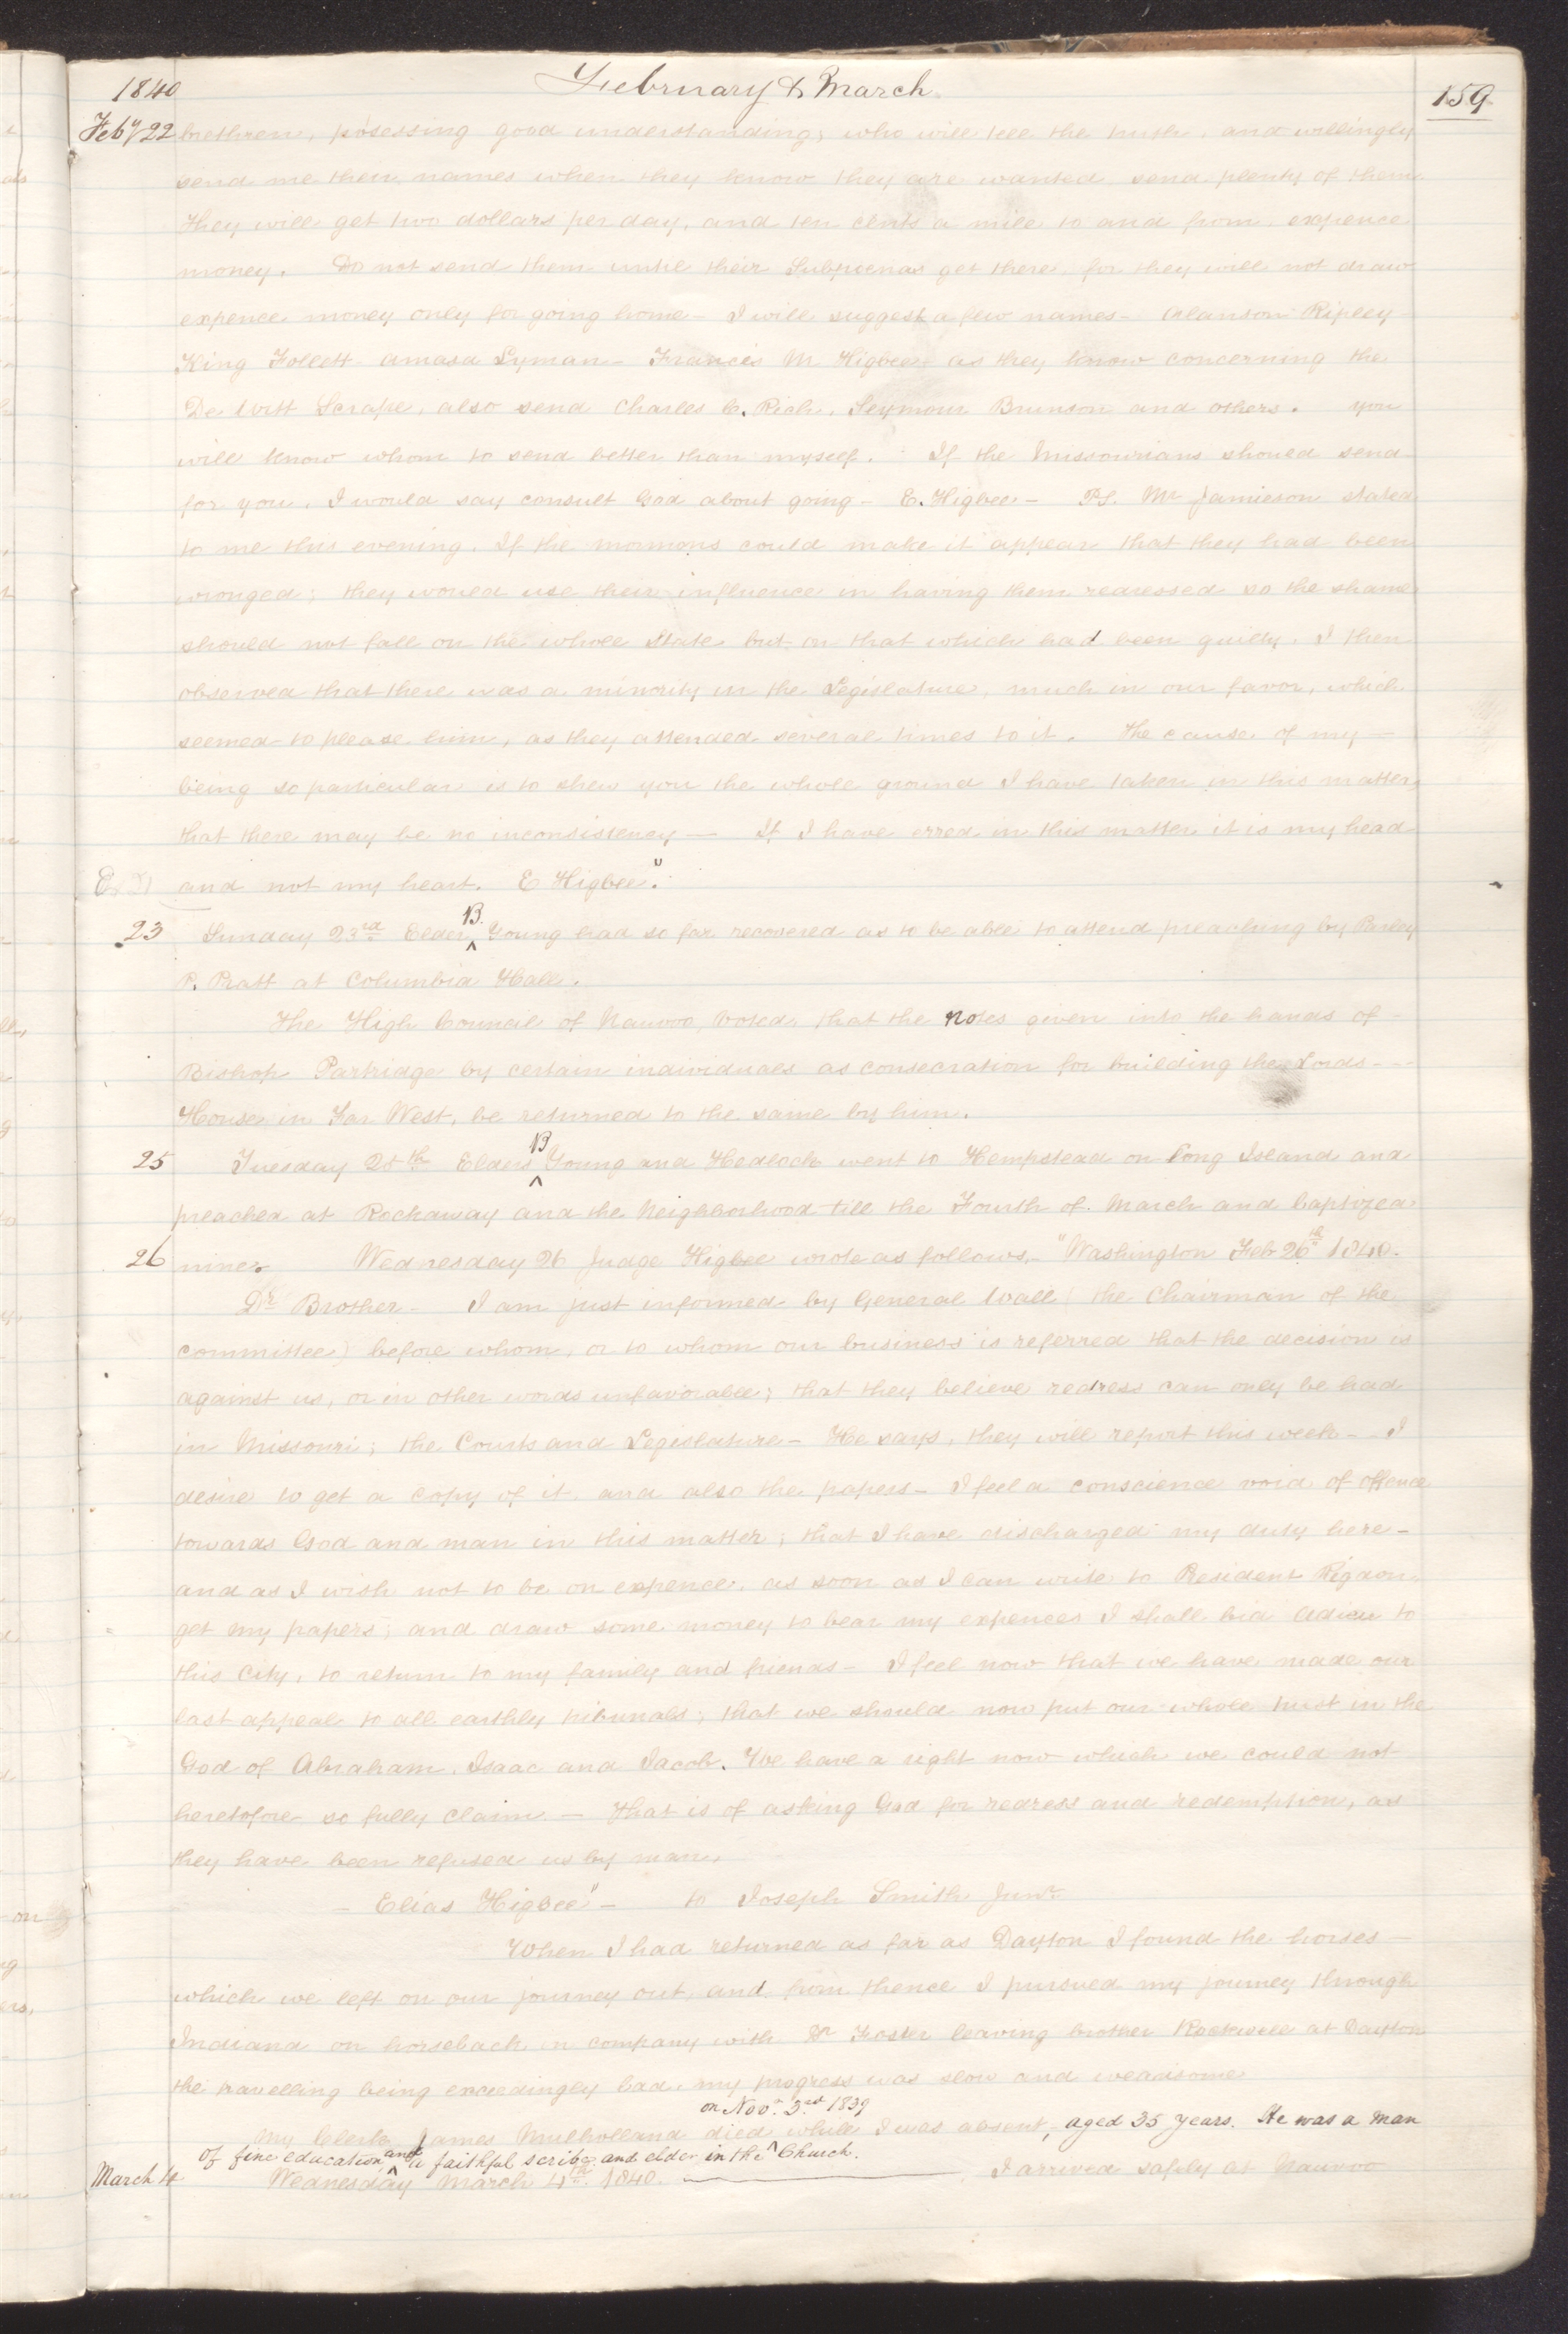 1840 February & March 159
Feby 22 brethren, posessing good understanding, who will tell the truth, and willingly
send me their names when they know they are wanted send plenty of them
they will get two dollars per day, and ten cents a mile to and from, expence
money. Do not send them until their Subpoenas get there, for they will not draw
expence money only for going home – I will suggest a few names – Alanson Ripley
King Follett Amasa Lyman – Francis M Higbee as they know concerning the
De Witt Scrape, also send Charles C. Rich, Seymour Brunson and others. you
will know whom to send better than myself. If the Missourians should send
for you, I would say consult God about going – E. Higbee – PS. Mr Jamieson stated
to me this evening, If the mormons could make it appear that they had been
wronged; they would use their influence in having them redressed so the shame
should not fall on the whole State but on that which had been guilty. I then
observed that there was a minority in the Legislature, much in our favor, which
seemed to please him, as they attended several times to it. The cause of my –
being so particular is to shew you the whole ground I have taken in this matter,
that there may be no inconsistency — If I have erred in this matter it is my head
and not my heart. E Higbee".
23 Sunday 23rd Elder ^B. Young had so far recovered as to be able to attend preaching by Parley
P. Pratt at Columbia Hall.
The High Council of Nauvoo voted, that the Notes given into the hands of –
Bishop Partridge by certain individuals as consecration for building the Lords –
House in Far West, be returned to the same by him.
25 Tuesday 25th Elders ^B Young and Hedlock went to Hempstead on Long Island and
preached at Rockaway and the Neighborhood till the Fourth of March and baptized
26 nine. Wednesday 26 Judge Higbee wrote as follows, – "Washington Feb 26th 1840.
Dr Brother – I am just informed by General Wall (the Chairman of the
committee) before whom, or to whom our business is referred that the decision is
against us, or in other words unfavorable; that they believe redress can only be had
in Missouri; the Courts and Legislature – He says, they will report this week – I
desire to get a copy of it, and also the papers – I feel a conscience void of offence
towards God and man in this matter; that I have discharged my duty here –
and as I wish not to be on expence, as soon as I can write to President Rigdon,
get my papers; and draw some money to bear my expences I shall bid adieu to
this City, to return to my family and friends – I feel now that we have made our
last appeal to all earthly tribunals; that we should now put our whole trust in the
God of Abraham, Isaac and Jacob. We have a right now which we could not
heretofore so fully claim – that is of asking God for redress and redemption, as
they have been refused us by man,
– Elias Higbee" – to Joseph Smith Junr
When I had returned as far as Dayton I found the horses –
which we left on our journey out, and from thence I pursued my journey through
Indiana on horseback in company with Dr Foster leaving brother Rockwell at Dayton
the travelling being exceedingly bad, my progress was slow and wearisome
on Novr. 3rd 1839
My Clerk James Mulholland died while I was absent, aged 35 years. He was a man
of fine education ^and a faithful scribe and elder in the ^ Church.
March 4 Wednesday March 4th 1840. — I arrived safely at Nauvoo